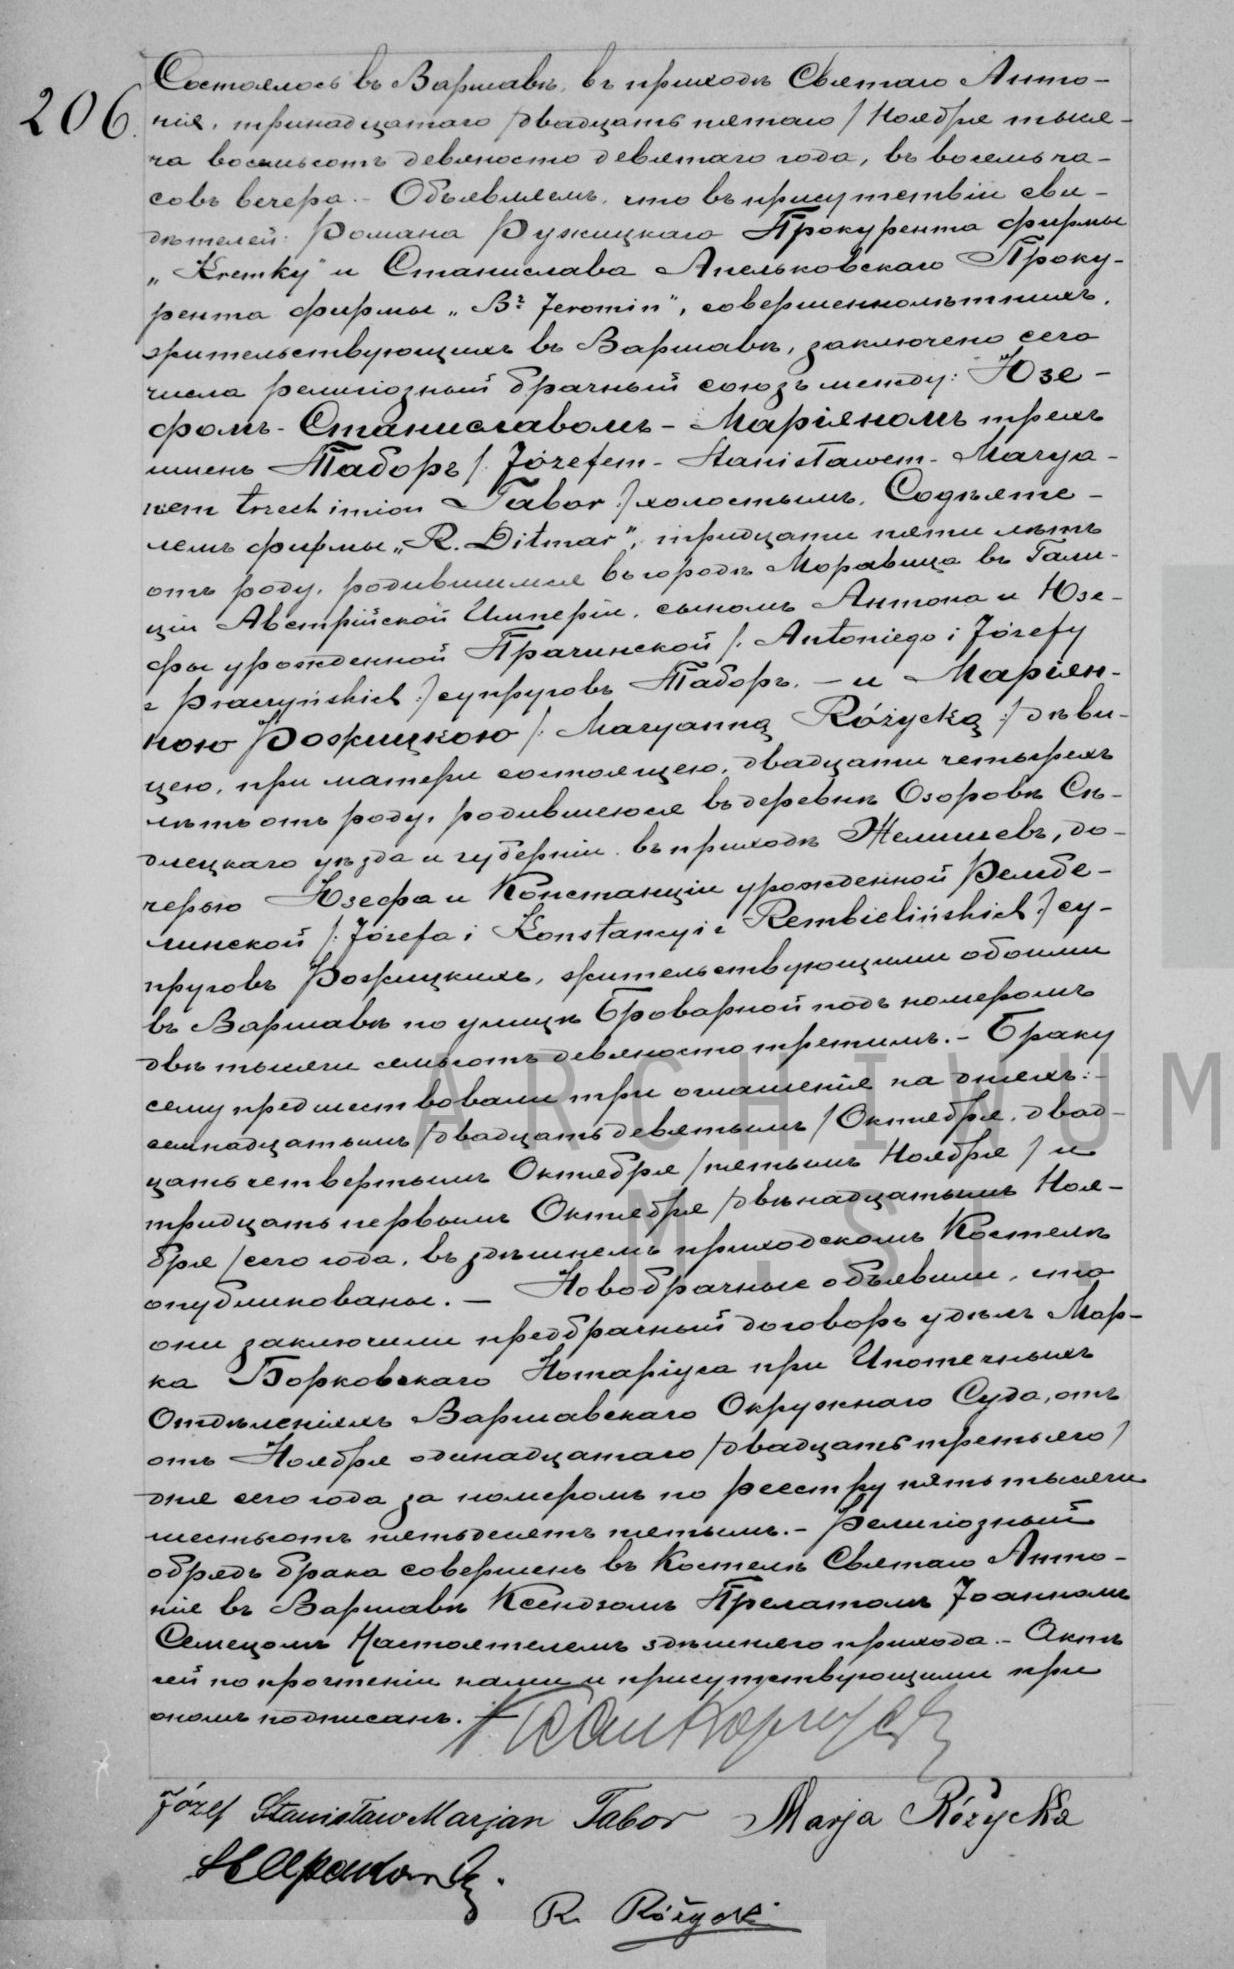 206.
Состоялось въ Варшавѣ, въ приходѣ Святаго Анто-
нія, тринадцатаго /двадцать пятаго/ Ноября тыся-
ча восемьсотъ девяносто девятаго года, въ восемь ча-
совъ вечера. - Объявляемъ, что въ присутствіи сви-
дѣтелей: Романа Ружицкаго Прокурента фирмы
„Kremky" и Станислава Апельковскаго Проку-
рента фирмы „Br Jeromin", совершеннолѣтнихъ,
жительствующихъ въ Варшавѣ, заключенъ сего
числа религіозный брачный союзъ между: Юзе-
фомъ - Станиславомъ - Маріяномъ трехъ
именъ Таборъ /: Józefem - Stanisławem - Marya-
nem trzech imion Tabor :/ холостымъ, Содѣяте-
лемъ фирмы „R. Ditmar", тридцати пяти лѣтъ
отъ роду, родившимся въ городѣ Моравица въ Гали-
ціи Австрійской Имперіи, сыномъ Антона и Юзе-
фы урожденной Прачинской /: Antoniego i Józefy
z Praczyńskich :/ супруговъ Таборъ. - и Маріян-
ною Ружицкою /: Maryanną Różycką :/ дѣви-
цею, при матери состоящею, двадцати четырехъ
лѣтъ отъ роду, родившеюся въ деревнѣ Озоровѣ Сѣ-
длецкаго уѣзда и губерніи въ приходѣ Желишевъ, до-
черью Юзефа и Констанціи урожденной Рембе-
линской /: Józefa i Konstancyi z Rembielińskich :/ су-
пруговъ Ружицкихъ, жительствующими обоими
въ Варшавѣ по улицѣ Броварной подъ номеромъ
двѣ тысячи семьсотъ девяносто третимъ. - Браку
сему предшествовали три оглашенія на дняхъ: -
семнадцатымъ /двадцать девятымъ/ Октября, двад-
цать четвертымъ Октября /пятымъ Ноября/ и
тридцать первымъ Октября /двѣнадцатымъ Ноя-
бря/ сего года, въ здѣшнемъ приходскомъ Костелѣ
опубликованы. - Новобрачные объявили, что
они заключили предбрачный договоръ у дѣлъ Мар-
ка Борковскаго Нотаріуса при Ипотечныхъ
Отдѣленіяхъ Варшавскаго Окружнаго Суда, отъ
отъ Ноября одинадцатаго /двадцать третьяго/
дня сего года за номеромъ по реестру пять тысячи
шестьсотъ пятьдесятъ пятымъ. - Религіозный
обрядъ брака совершенъ въ Костелѣ Святаго Анто-
нія въ Варшавѣ Ксендзомъ Прелатомъ Іоанномъ
Семецомъ Настоятелемъ здѣшняго прихода. - Актъ
сей по прочтеніи нами и присутствующими при
ономъ подписанъ. -
Józef Stanisław Marjan Tabor Marja Różycka
R. Różycki
ARCHIWUM
M. ST.